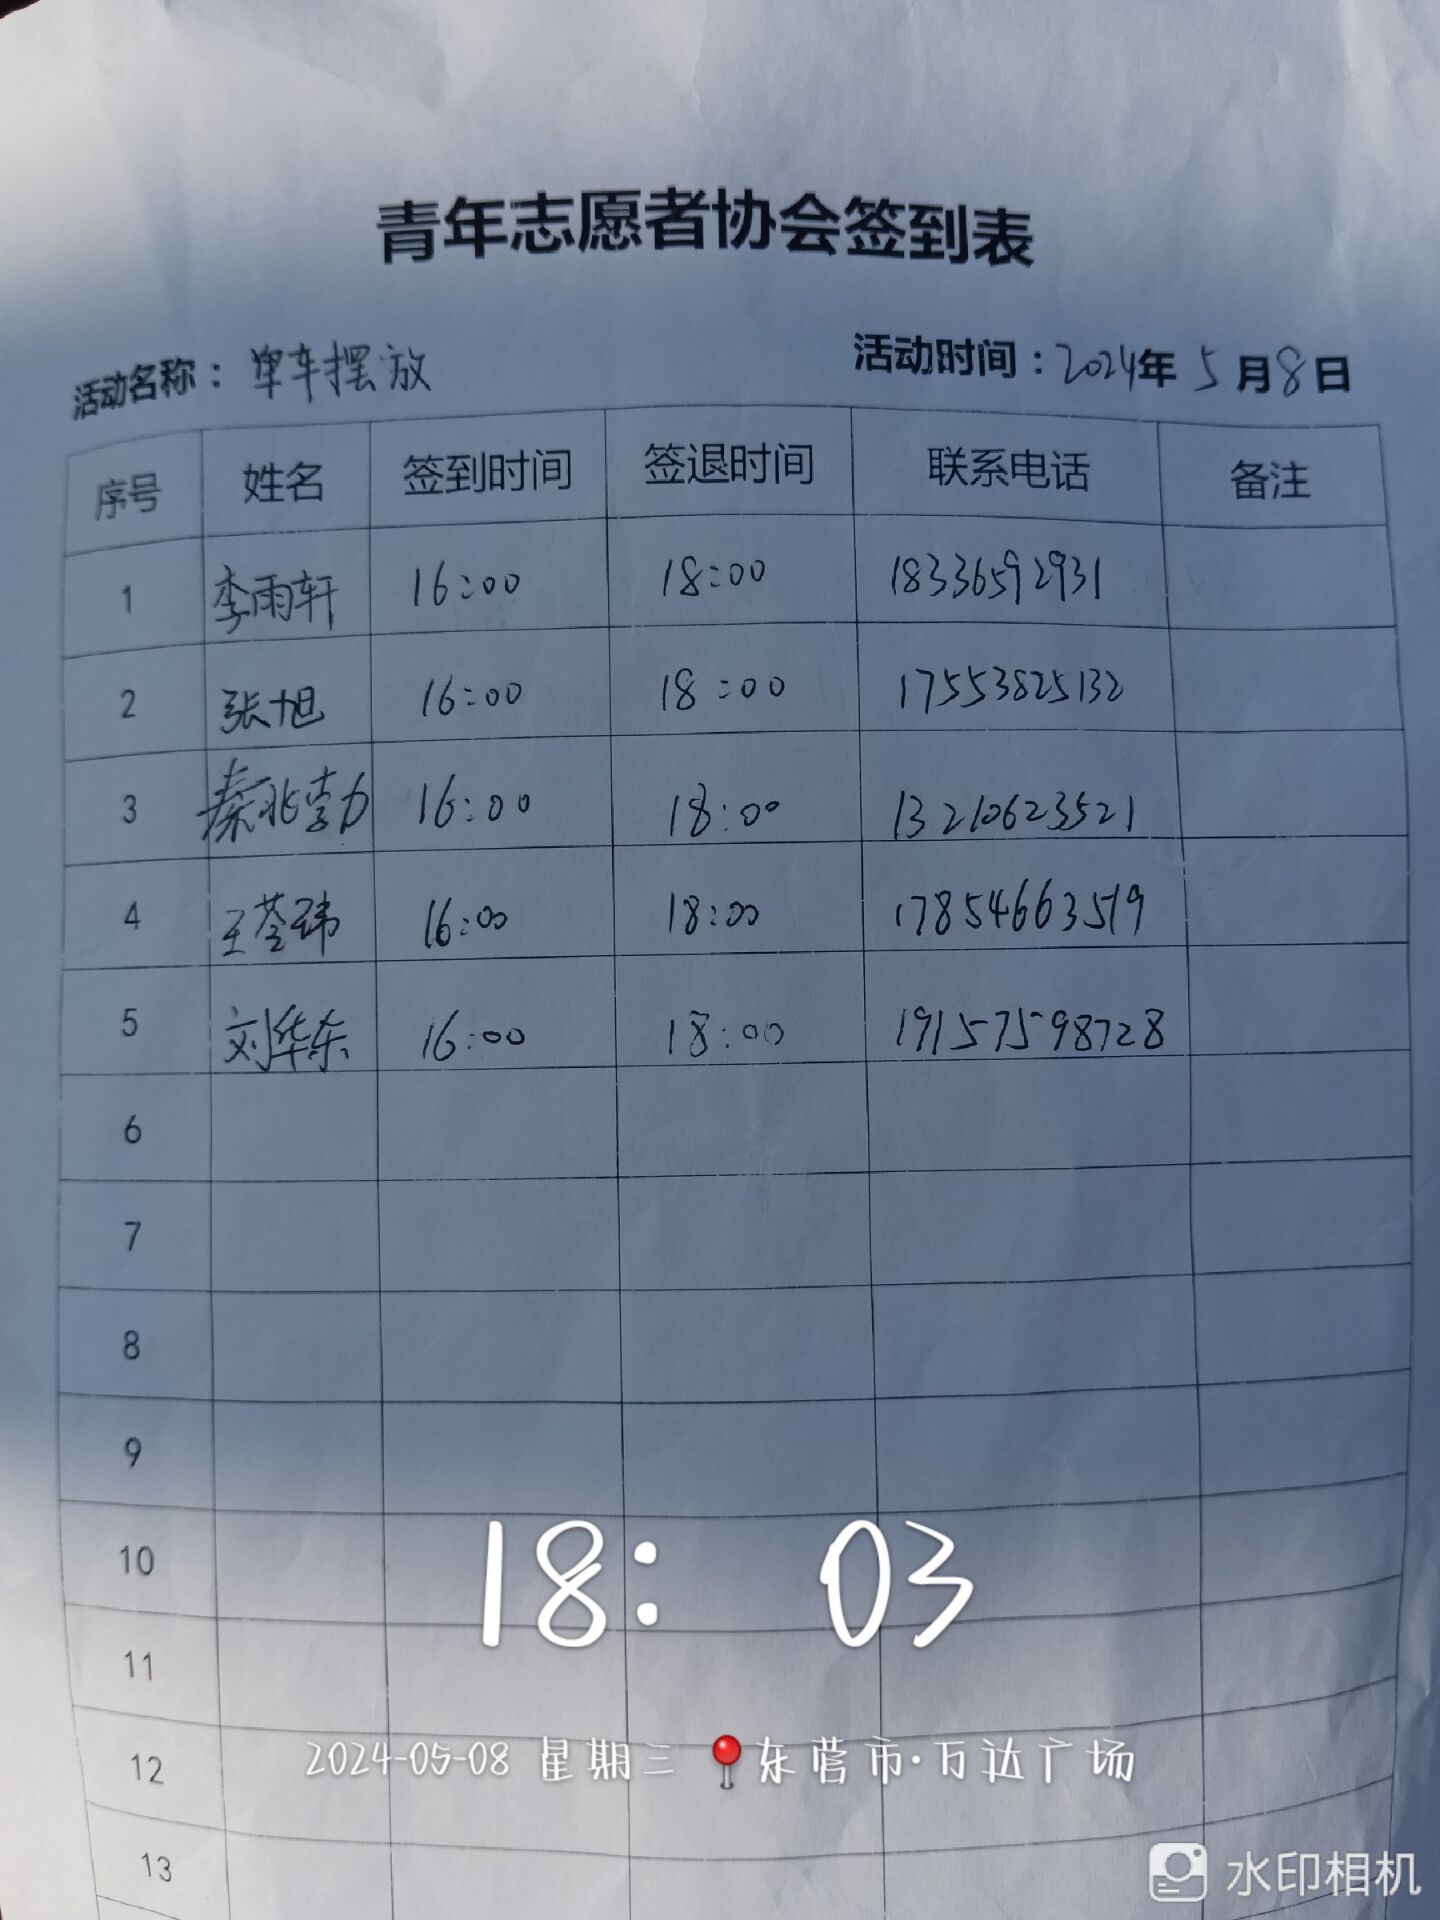 青年志愿者协会签到表
活动名称：单车摆放 活动时间：2024年5月8日
序号 姓名 签到时间 签退时间 联系电话 备注
1 李雨轩 16:00 18:00 18336592931
2 张旭 16:00 18:00 17553825132
3 秦兆勃 16:00 18:00 13210623521
4 王荃玮 16:00 18:00 17854663519
5 刘华东 16:00 18:00 19157598728
6
7
8
9
10
18: 03
11
2024-05-08 星期三 东营市·万达广场
12
13
水印相机